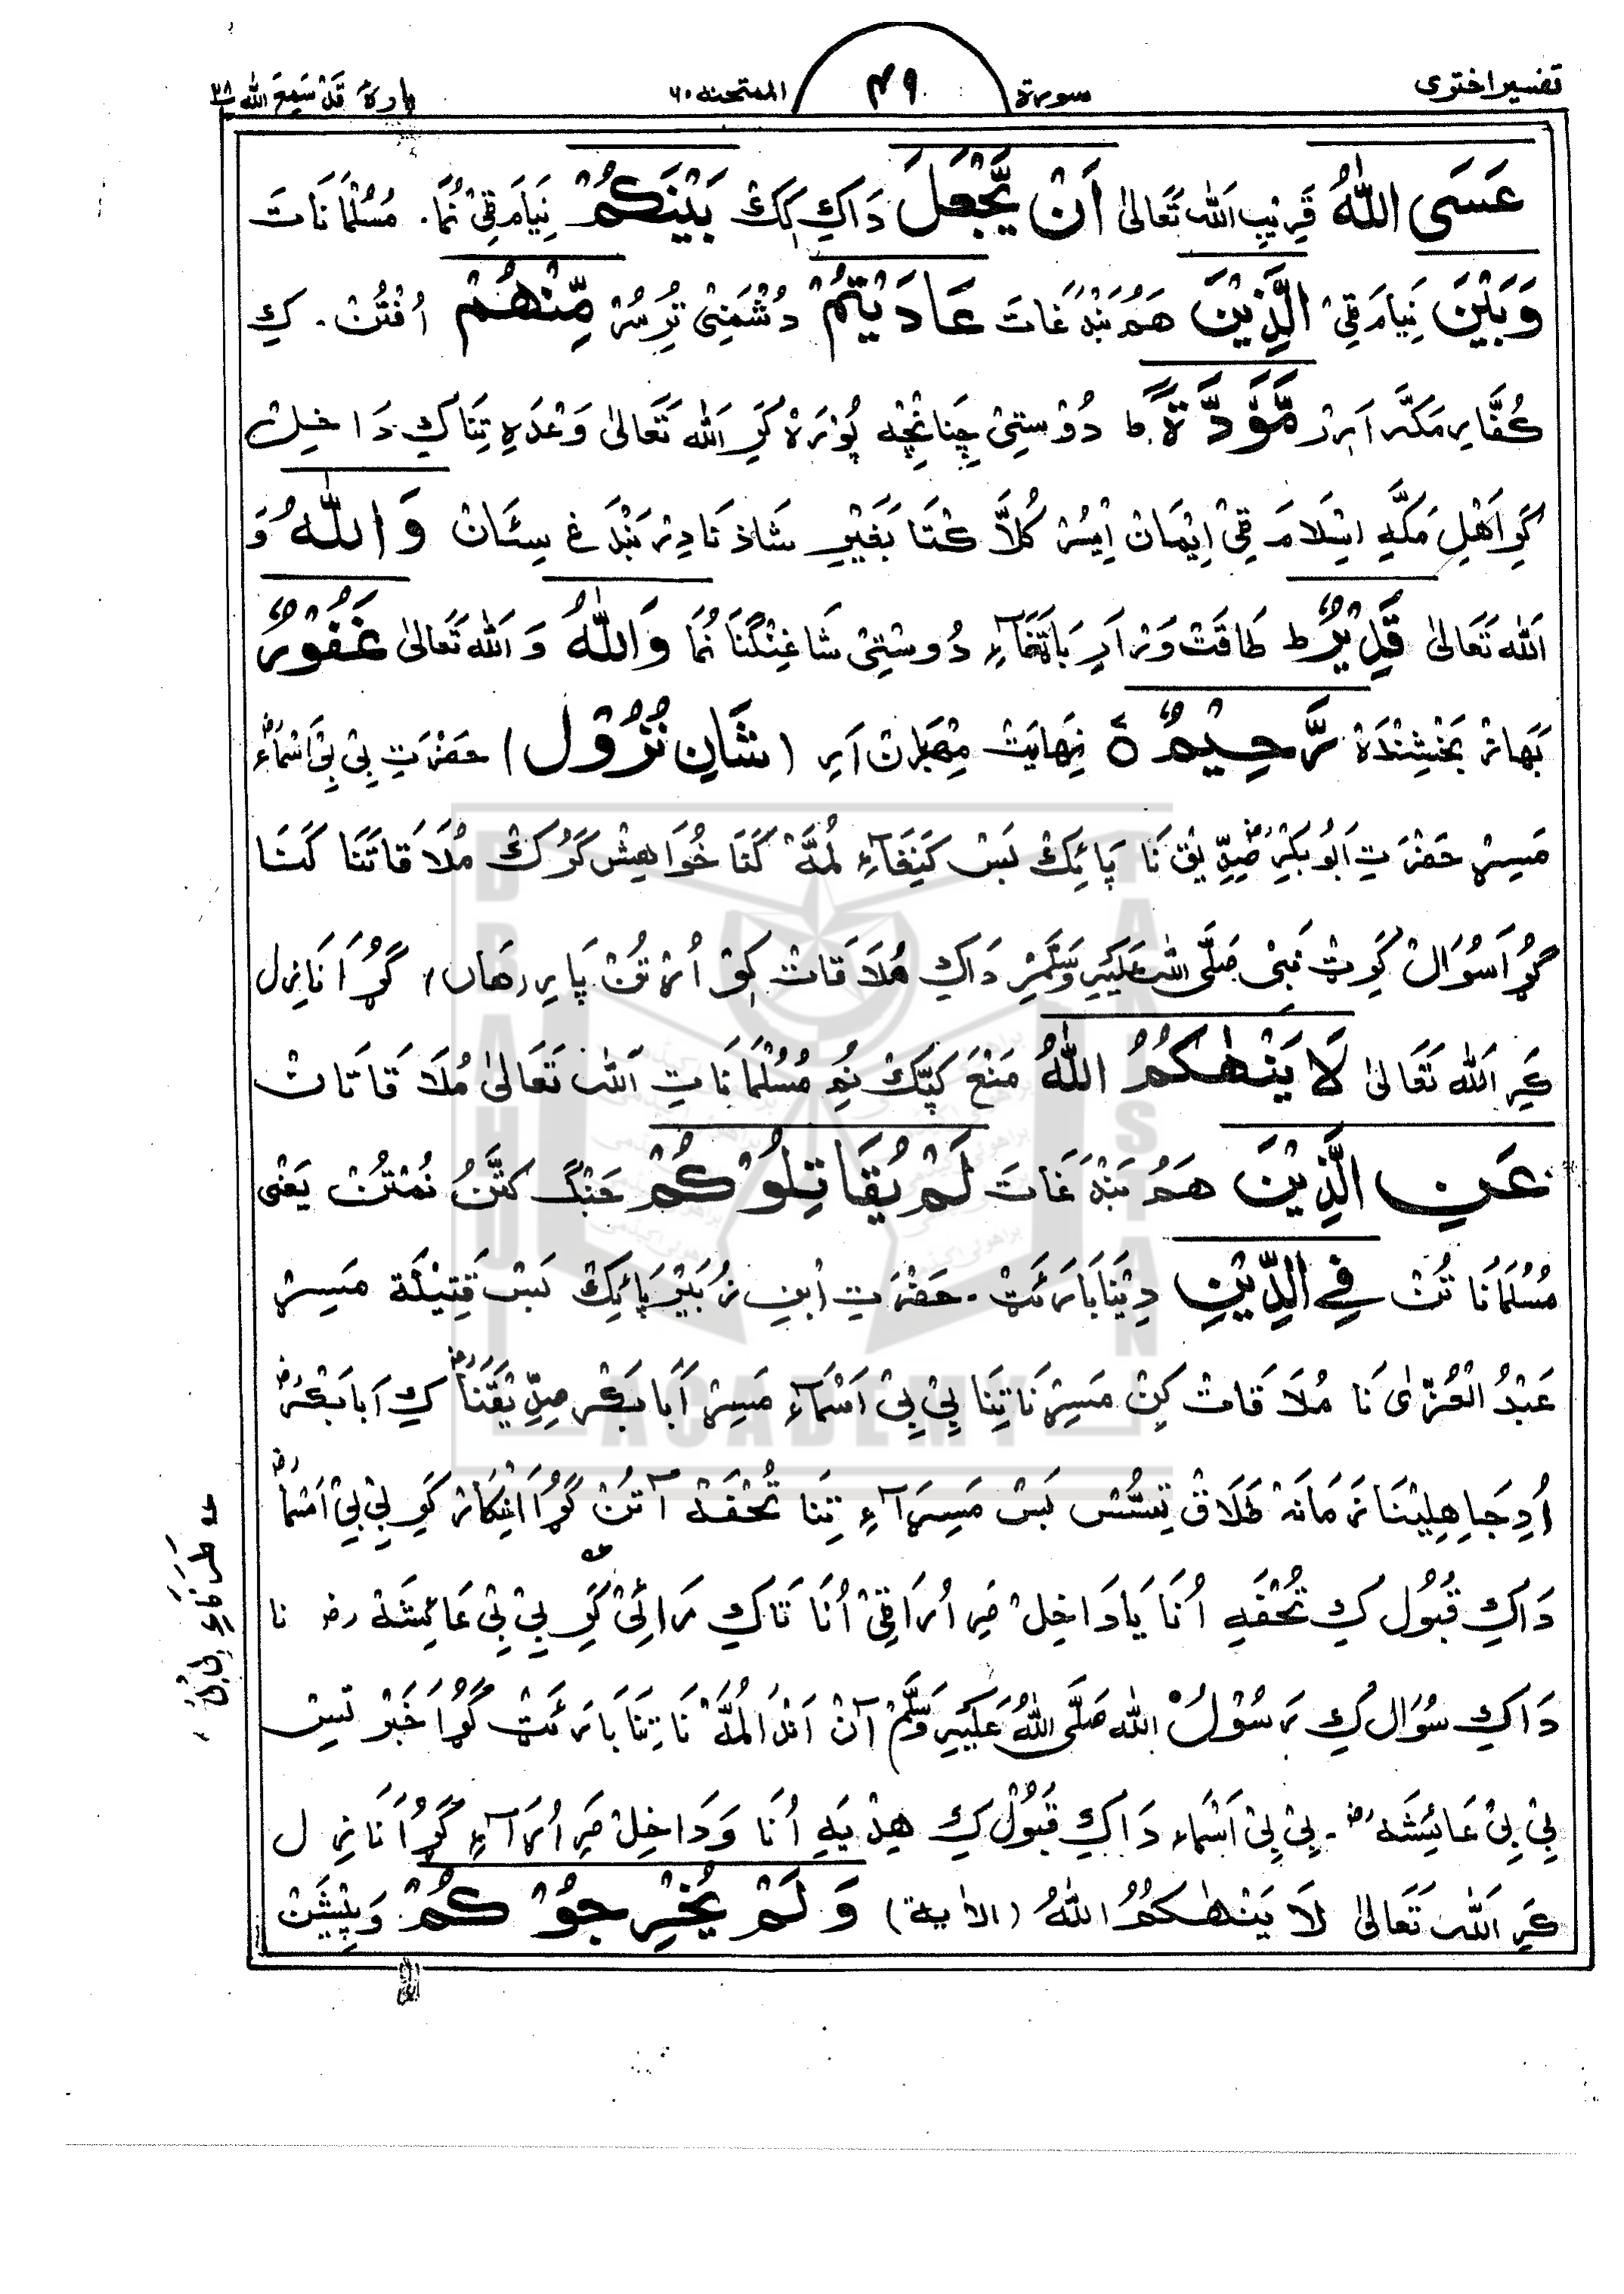 تفسیر اختری
سورة ۴۹ الممتحنه ۶۰
پارهٔ قَدْ سَمِعَ اللہ ۲۸
عَسَى اللّٰهُ قَرِیْبِ اَللہ تَعَالیٰ اَنْ یَّجْعَلَ دَاکِ کِکْ بَیْنَكُمْ نِیَامَ قِیْ نُمَا. مُسُلْمَانَاتَ
وَبَيْنَ نِیَامَ قِیْ الَّذِيْنَ هَمُ بَنْدَغَاتَ عَادَيْتُمْ دُشْمَنِیْ تِرِسُرْ مِّنْهُمْ اُفْتُنْ. کِ
کُفَّارِ مَکَّہ اَرِرْ مَّوَدَّةً ؕ دُوْسِتِیْ چَنَانْچِه پُوْرَہ کَرِ اَللہ تَعَالیٰ وَعْدَہِ تِنَاکِ دَاخِلْ
کَرِ اَهْلِ مَکَّہِ اِسْلَامَ قِیْ اِیْمَانْ اِیْسُرْ کُلَّا کُتَا بَغَیْرِ شَاذ نَادِرْ بَنْدَ غ سِئَانْ وَاللّٰهُ وَ
اَللہ تَعَالیٰ قَدِيْرٌ ؕ طَاقَتْ وَرْ اَرِ بَاتِغَآءِ دُوسْتِیْ شَاغِنْگنَا نُمَا وَاللّٰهُ وَ اَللہ تَعَالیٰ غَفُوْرٌ
بَهَازْ بَخْشِنْدَہ رَّحِيْمٌ ۝ نِهَایَتْ مِهْرِبَانْ اَرِ (شَانِ نُزُوْل) حَضْرَتِ بِیْ بِیْ اَسْمَاءؓ
مَسِڑ حَضْرَتِ اَبُو بَکْرِ صِدِّیْقؓ نَا پَائِکْ بَسْ کَنِغَآءِ لُمَّهْ کَنَا خُوَاهِشْ کَرُکْ مُلَاقَاتَنَا کَنَا
گُڑَا سُوَالْ کَرِٹ نَبِیْ صَلَّی اللہ عَلَیْہِ وَسَلَّمِرْ دَاکِ مُلَاقَاتْ کِوْ اُرْتُنْ پَارِ رهَاں، گُڑَا نَازِل
کَرِ اَللہ تَعَالیٰ لَا يَنْهٰكُمُ اللّٰهُ مَنْعَ کَپَّکْ نُمِ مُسُلْمَانَاتِ اَللہ تَعَالیٰ مُلَاقَاتَانْ
عَنِ الَّذِيْنَ هَمُ بَنْدَغَاتَ لَمْ يُقَاتِلُوْكُمْ جَنْگ کَتَّنُ نُمْتُنْ یَعْنِی
مُسُلْمَانَا تُنْ فِي الدِّيْنِ دِیْنَا بَارَئَٹ. حَضْرَتِ اِبْنِ زُبَیْر پَائِکْ بَسْ قَتِیْلَة مَسِڑ
عَبْدُ الْعُزّٰی نَا مُلَاقَاتْ کِنْ مَسِڑنَا تِنَا بِیْ بِیْ اَسْمَاءِ مَسِڑ اَبَابَکْر صِدِّیْقَنَاؓ کِ اَبَابَکْرؓ
اُدِ جَاهِلِیْنَا زَمَانَہ طَلَاقْ تِسُّسْ بَسْ مَسِڑآءِ تِنَا تُحْفَہ آتُنْ گُڑَا اِنْکَارْ کَرِ بِیْ بِیْ اَسْمَاؓ
دَاکِ قُبُولْ کِ تُحْفَہِ اُنَا یَا دَاخِلْ مَرِ اُرَاقِیْ اُنَا تَاکِ رَائِیْ کَرِ بِیْ بِیْ عَائِشَہ رض نا
دَاکِ سُوَال کِ رَسُوْلُ اللہ صَلَّی اللہُ عَلَیْہِ وَسَلَّمْ آنْ اَنْدَا لُمَّهْ نَا تِنَا بَارَئَٹْ گُڑَا خَبَرْ تِسْ
بِیْ بِیْ عَائِشَہؓ. بِیْ بِیْ اَسْمَاء دَاکِ قَبُوْل کِ هِدْیَہِ اُنَا وَدَاخِلْ مَرِ اُرَآءِ گُڑَا نَازِل
کَرِ اَللہ تَعَالیٰ لَا يَنْهٰكُمُ اللّٰهُ (الاٰیة) وَلَمْ يُخْرِجُوْكُمْ وَ پِیْشَنْ
BRAHUI
ACADEMY
PAKISTAN